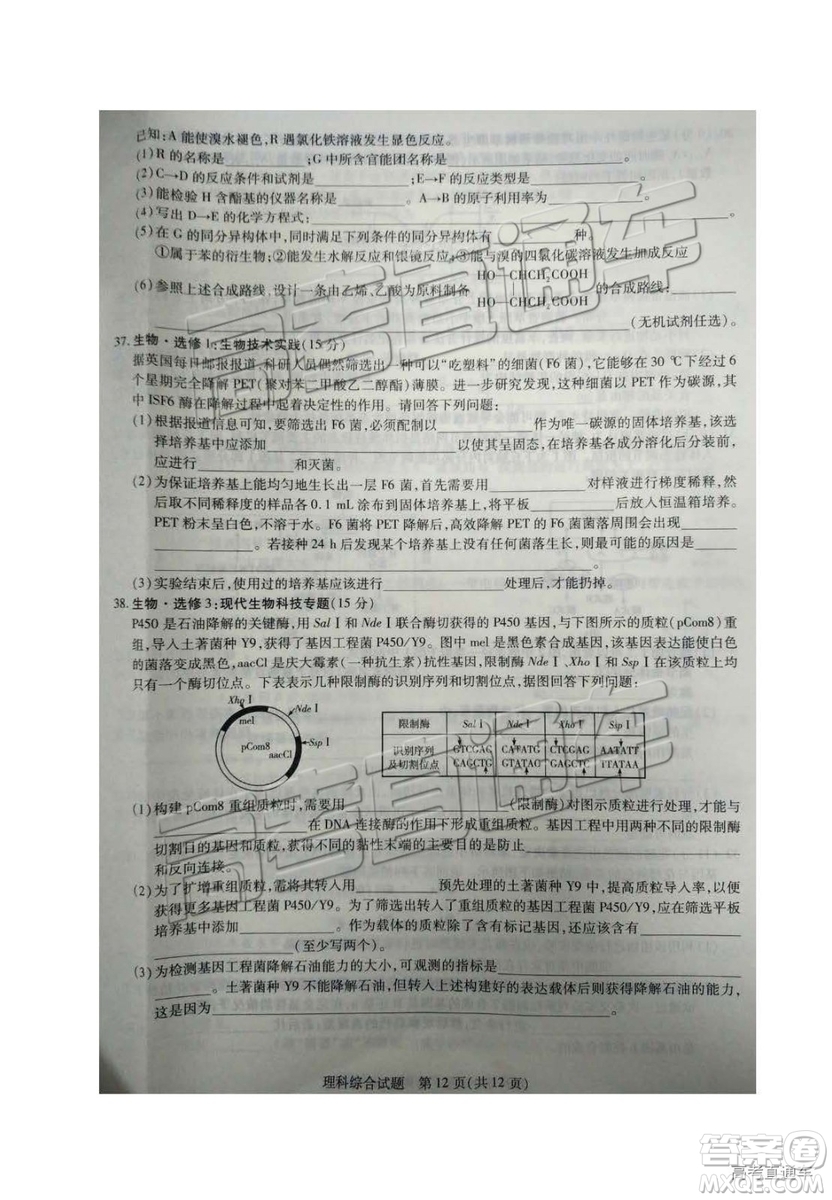 已知:A 能使溴水褪色,R 遇氯化铁溶液发生显色反应。
(1)R 的名称是________;G 中所含官能团名称是________。
(2)C→D 的反应条件和试剂是________;E→F 的反应类型是________。
(3)能检验 H 含酯基的仪器名称是________。A→B 的原子利用率为________。
(4)写出 D→E 的化学方程式:________
(5)在 G 的同分异构体中,同时满足下列条件的同分异构体有________种。
①属于苯的衍生物;②能发生水解反应和银镜反应;③能与溴的四氯化碳溶液发生加成反应
HO—CHCH₂COOH
(6)参照上述合成路线,设计一条由乙烯、乙酸为原料制备 的合成路线:________
HO—CHCH₂COOH
________(无机试剂任选)。
37. 生物·选修 1:生物技术实践(15 分)
据英国每日邮报报道,科研人员偶然筛选出一种可以“吃塑料”的细菌(F6 菌),它能够在 30 ℃下经过 6
个星期完全降解 PET(聚对苯二甲酸乙二醇酯)薄膜。进一步研究发现,这种细菌以 PET 作为碳源,其
中 ISF6 酶在降解过程中起着决定性的作用。请回答下列问题:
(1)根据报道信息可知,要筛选出 F6 菌,必须配制以________作为唯一碳源的固体培养基,该选
择培养基中应添加________以使其呈固态,在培养基各成分溶化后分装前,
应进行________和灭菌。
(2)为保证培养基上能均匀地生长出一层 F6 菌,首先需要用________对样液进行梯度稀释,然
后取不同稀释度的样品各 0.1 mL 涂布到固体培养基上,将平板________后放入恒温箱培养。
PET 粉末呈白色,不溶于水。F6 菌将 PET 降解后,高效降解 PET 的 F6 菌菌落周围会出现________
________。若接种 24 h 后发现某个培养基上没有任何菌落生长,则最可能的原因是________
________。
(3)实验结束后,使用过的培养基应该进行________处理后,才能扔掉。
38. 生物·选修 3:现代生物科技专题(15 分)
P450 是石油降解的关键酶,用 Sal Ⅰ 和 Nde Ⅰ 联合酶切获得的 P450 基因,与下图所示的质粒(pCom8)重
组,导入土著菌种 Y9,获得了基因工程菌 P450/Y9。图中 mel 是黑色素合成基因,该基因表达能使白色
的菌落变成黑色,aacCl 是庆大霉素(一种抗生素)抗性基因,限制酶 Nde Ⅰ、Xho Ⅰ 和 Ssp Ⅰ 在质粒上均
只有一个酶切位点。下表表示几种限制酶的识别序列和切割位点,据图回答下列问题:
Xho Ⅰ
mel
Nde Ⅰ
Ssp Ⅰ
pCom8
aacCl
限制酶 Sal Ⅰ Nde Ⅰ Xho Ⅰ Ssp Ⅰ
识别序列 GTCGAC CATATG CTCGAG AATATT
及切割位点 CAGCTG GTATAC GAGCTC TTATAA
(1)构建 pCom8 重组质粒时,需要用________(限制酶)对图示质粒进行处理,才能与
________在 DNA 连接酶的作用下形成重组质粒。基因工程中用两种不同的限制酶
切割目的基因和质粒,获得不同的黏性末端的主要目的是防止________
和反向连接。
(2)为了扩增重组质粒,需将其转入用________预先处理的土著菌种 Y9 中,提高质粒导入率,以
获得更多基因工程菌 P450/Y9。为了筛选出转入了重组质粒的菌种 P450/Y9,应在筛选平板
培养基中添加________。作为载体的质粒除了含有标记基因,还应含有________
________(至少写两个)。
(3)为检测基因工程菌降解石油能力的大小,可观测的指标是________
________。土著菌种 Y9 不能降解石油,但转入上述构建好的表达载体后则获得降解石油的能力,
这是因为________。
理科综合试题 第 12 页(共 12 页)
高考直通车
答案圈
高考直通车
MXQE.COM